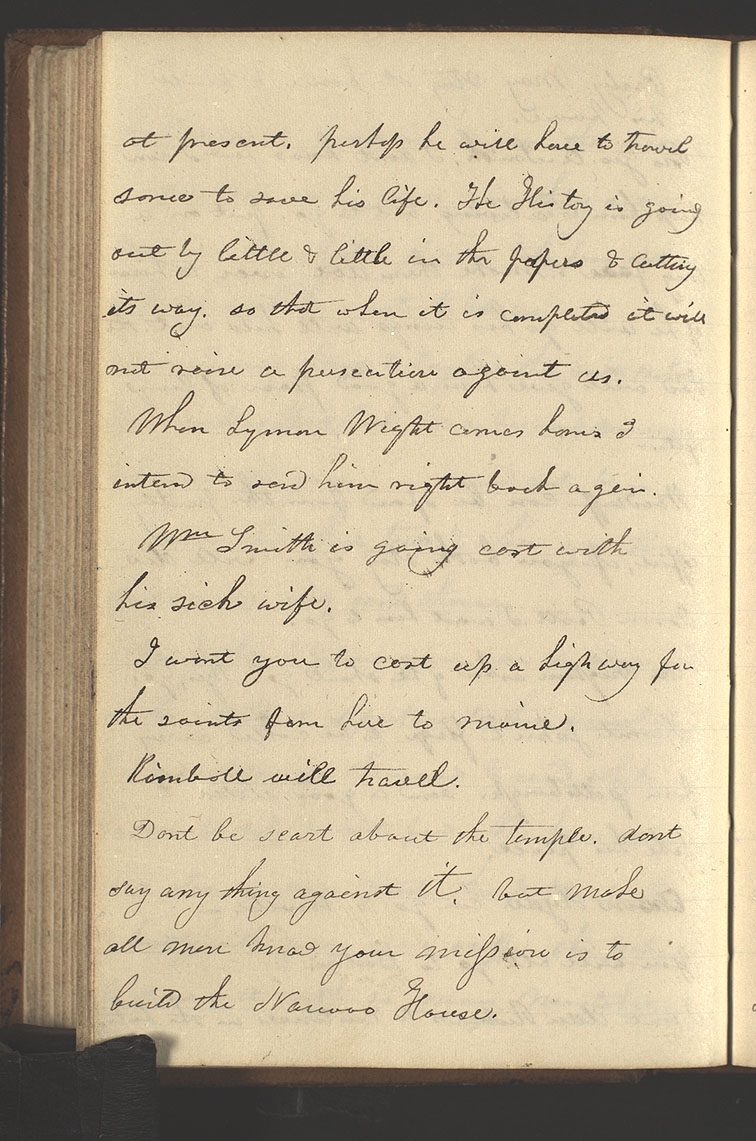 at present. perhaps he will have to travel
some to save his life. The History is going
out by little & little in the papers & cutting
its way. so that when it is completed it will
not raise a persecution against us.
When Lyman Wight comes home I
intend to send him right back again.
Wm Smith is going east with
his sick wife.
I want you to cast up a high way for
the saints from here to maine.
Kimball will travel.
Dont be scart about the temple. dont
say any thing against it. but make
all men know your mission is to
build the Nauvoo House.